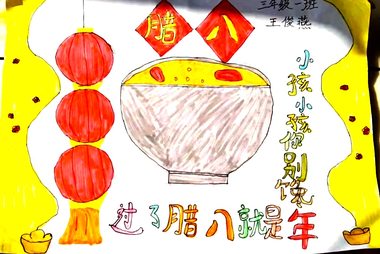 腊八
三年级一班
王俊燕
小孩小孩你别馋
过了腊八就是年